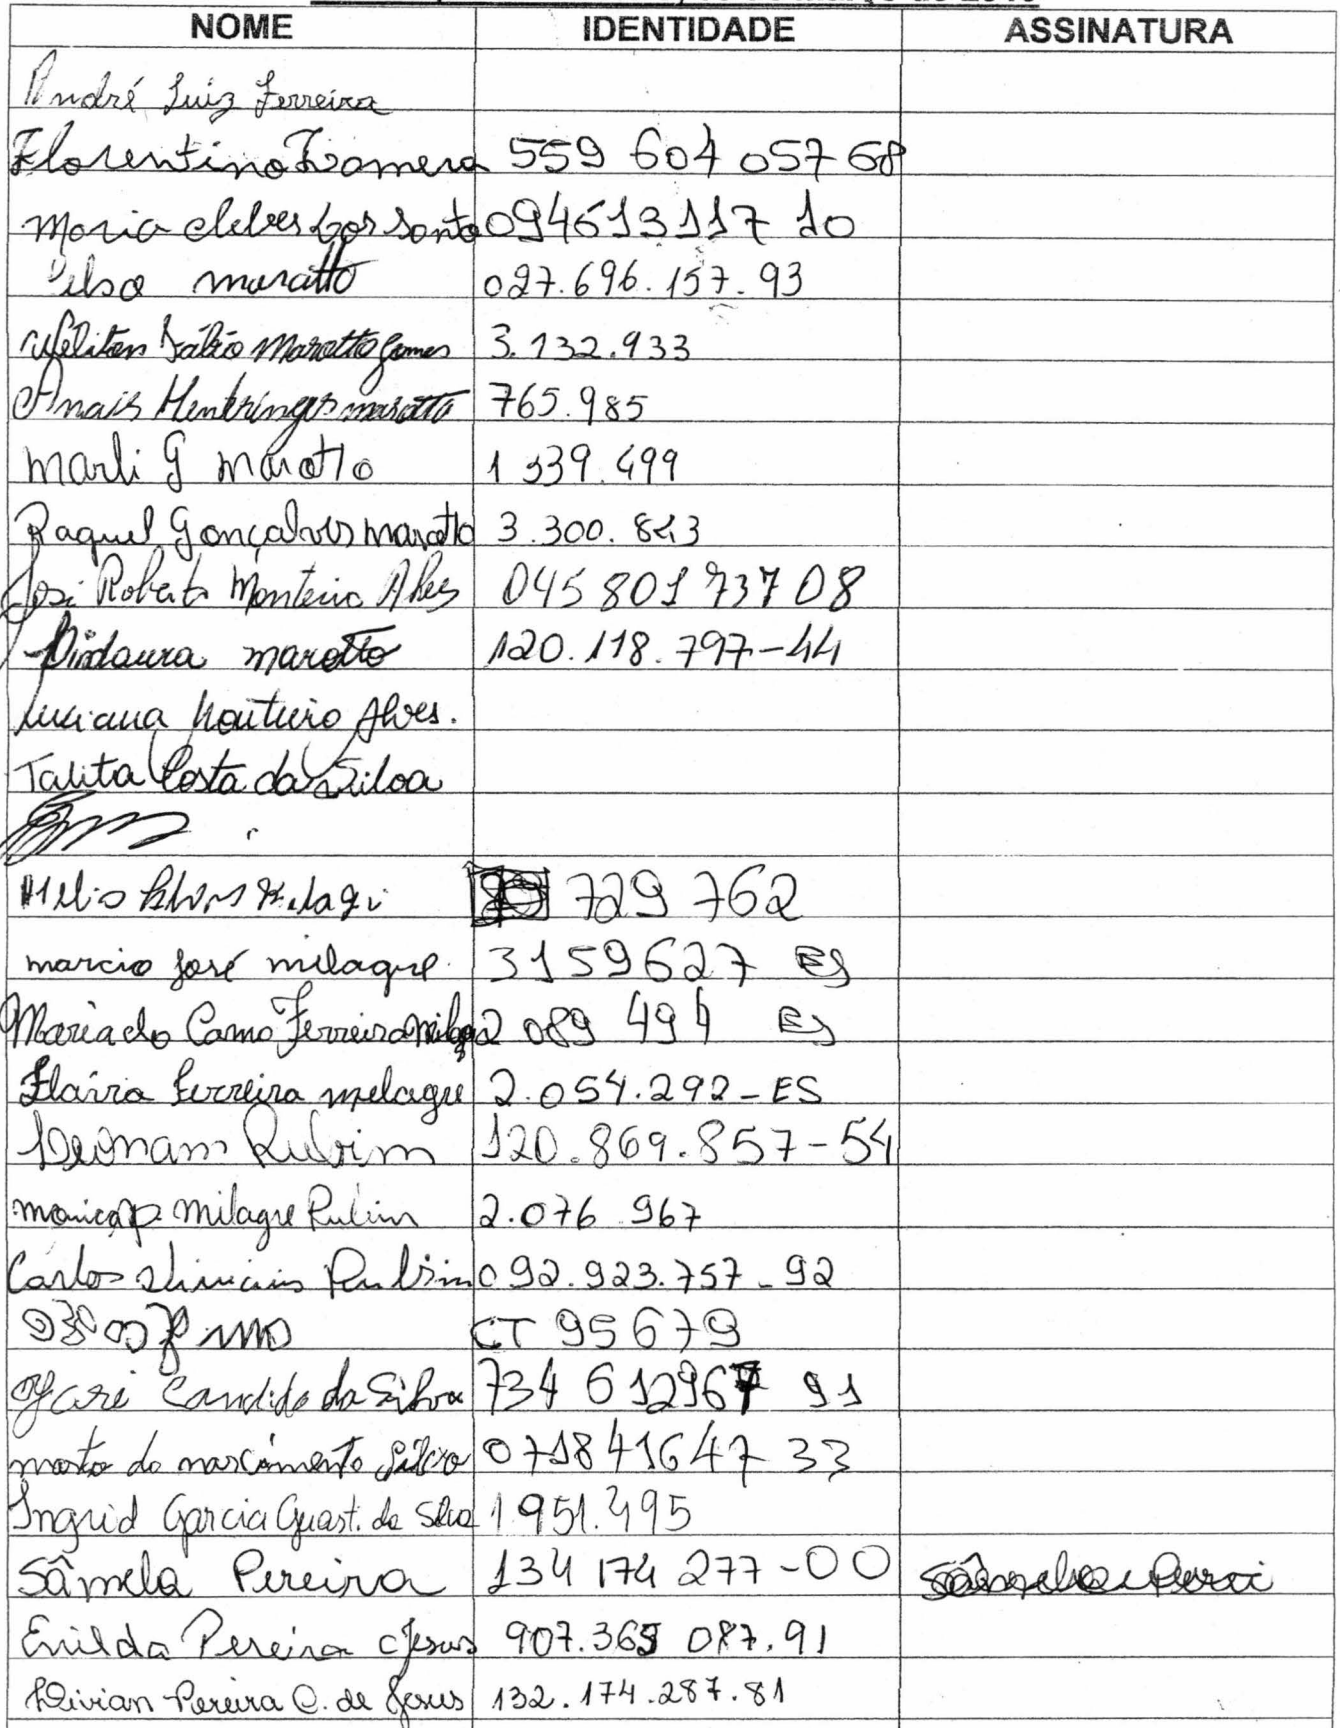 NOME IDENTIDADE ASSINATURA
André Luiz Ferreira
Florentino 559 604 057 68
Maria dos Santo 094613117 10
maratto 027.696.157.93
Weliton Fábio Marotto Gomes 3.132.933
Anais maratto 765.985
Marli G marotto 1 339.499
Raquel Gonçalves marotto 3.300.843
José Roberto Monteiro Alves 045 801 737 08
Dindaura marotto 120.118.797-44
Luciana Monteiro Alves.
Talita Costa da Silva
729 762
marcio José milagre. 3159627 ES
Maria do Carmo Ferreira 2 089 494 ES
Flávia Ferreira melagre 2.054.292-ES
Rubim 120.869.857-54
milagre Rubim 2.076 967
Carlos Vinicius Rubim 092.923.757-92
CT 95679
Candido da Silva 734 612967 91
do nascimento Silva 071841647 33
Ingrid Garcia Guast. da Silva 1 951.495
Sâmela Pereira 134 174 277-00
Enilda Pereira Jesus 907.365 087.91
Pereira C. de Jesus 132.174.287.81